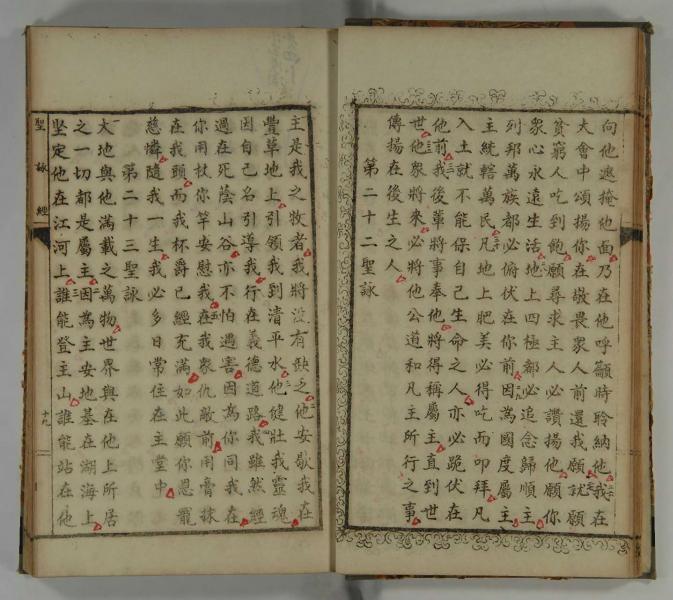 向他遮掩他面乃在他呼籲時聆納他我在
大會中頌揚你在敬畏眾人前還我願狀願
貧窮人吃到飽願尋求主人必讚揚他願你
眾心永遠生活地上四極都必追念歸順主
列邦萬族都必俯伏在你前因為國度屬主
主統轄萬民凡地上肥美必得吃而叩拜凡
入土就不能保自己生命之人亦必跪伏在
他前我後輩將事奉他將得稱屬主直到世
世他眾將來必將他公道和凡主所行之事
傳揚在後生之人
第二十二聖詠
主是我之牧者我將沒有缺乏他安歇我在
豐草地上引領我到清平水他健壯我靈魂
因自己名引導我行在義德道路我雖然經
過在死蔭山谷亦不怕遇害因為你同我在
你用杖你竿安慰我在我眾仇敵前用膏抹
在我頭而我杯爵已經充滿如此願你恩寵
慈憐隨我一生我必多日常住在主堂中
第二十三聖詠
大地與他滿載之萬物世界與在他上所居
之一切都是屬主因為主安地基在湖海上
堅定他在江河上誰能登主山誰能站在他
聖詠經
十九